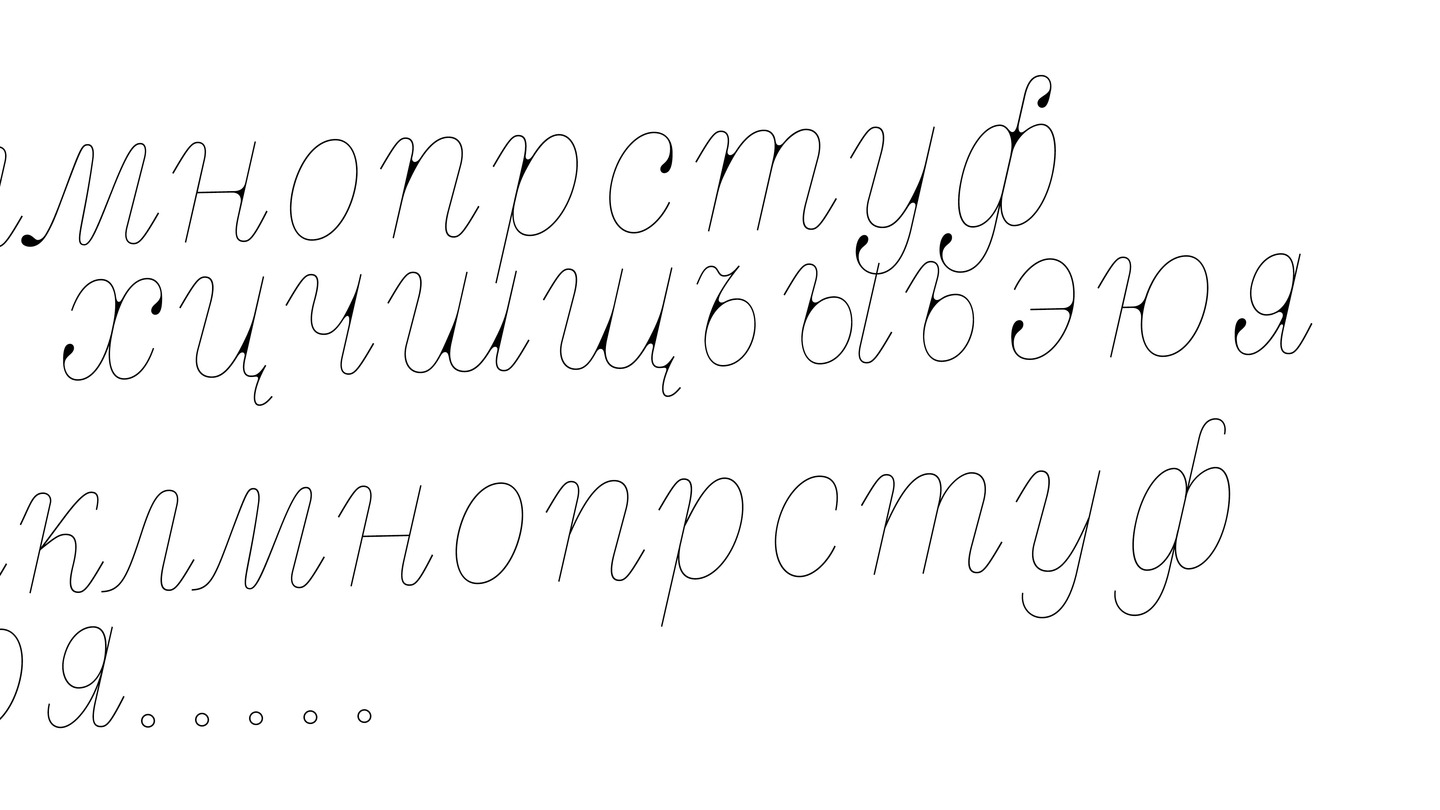 лмнопрстуф
хцчшщъыьэюя
клмнопрстуф
юя.....